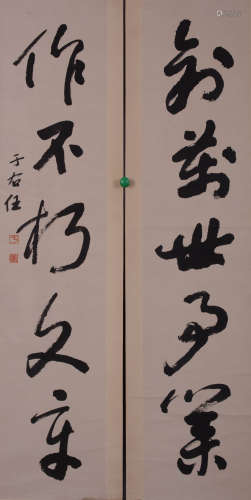 創萬世事業
作不朽文章
于右任